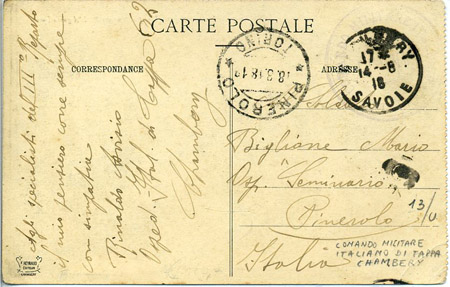 CARTE POSTALE
CORRESPONDANCE
ADRESSE
CHAMBERY
17
14-8
18
SAVOIE
TORINO
18.8.18.1
PINEROLO
Agli specialisti del III° Reparto
il mio pensiero come sempre
con simpatia
Rinaldo
Osped. Ital. di Tappa
Chambery
Bigliane Mario
Osp. Seminario
Pinerolo
Italia
13/U
COMANDO MILITARE
ITALIANO DI TAPPA
CHAMBERY